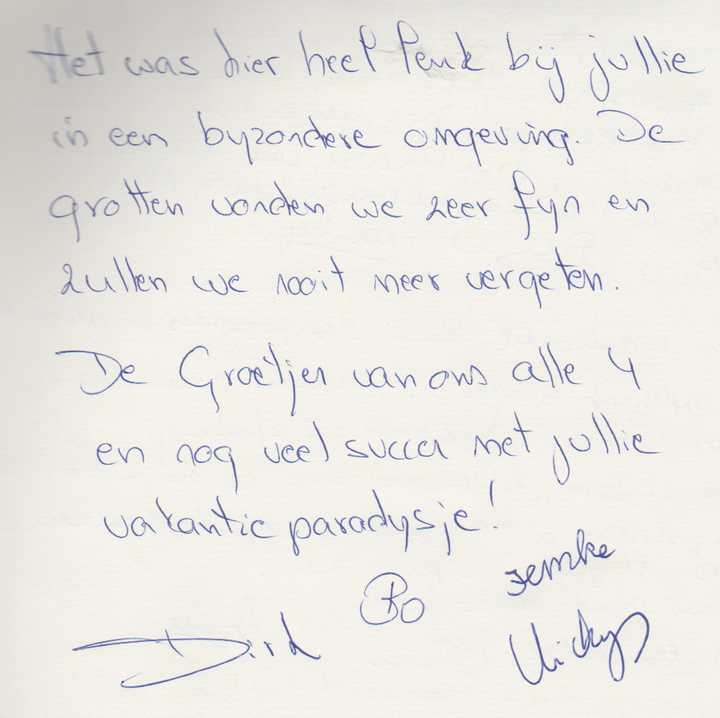 Het was hier heel leuk bij jullie
in een byzondere omgeving. De
grotten vonden we zeer fyn en
zullen we nooit meer vergeten.
De Groetjes van ons alle 4
en nog veel succes met jullie
vakantie paradysje!
Bo
Jemke
Dirk
Vicky